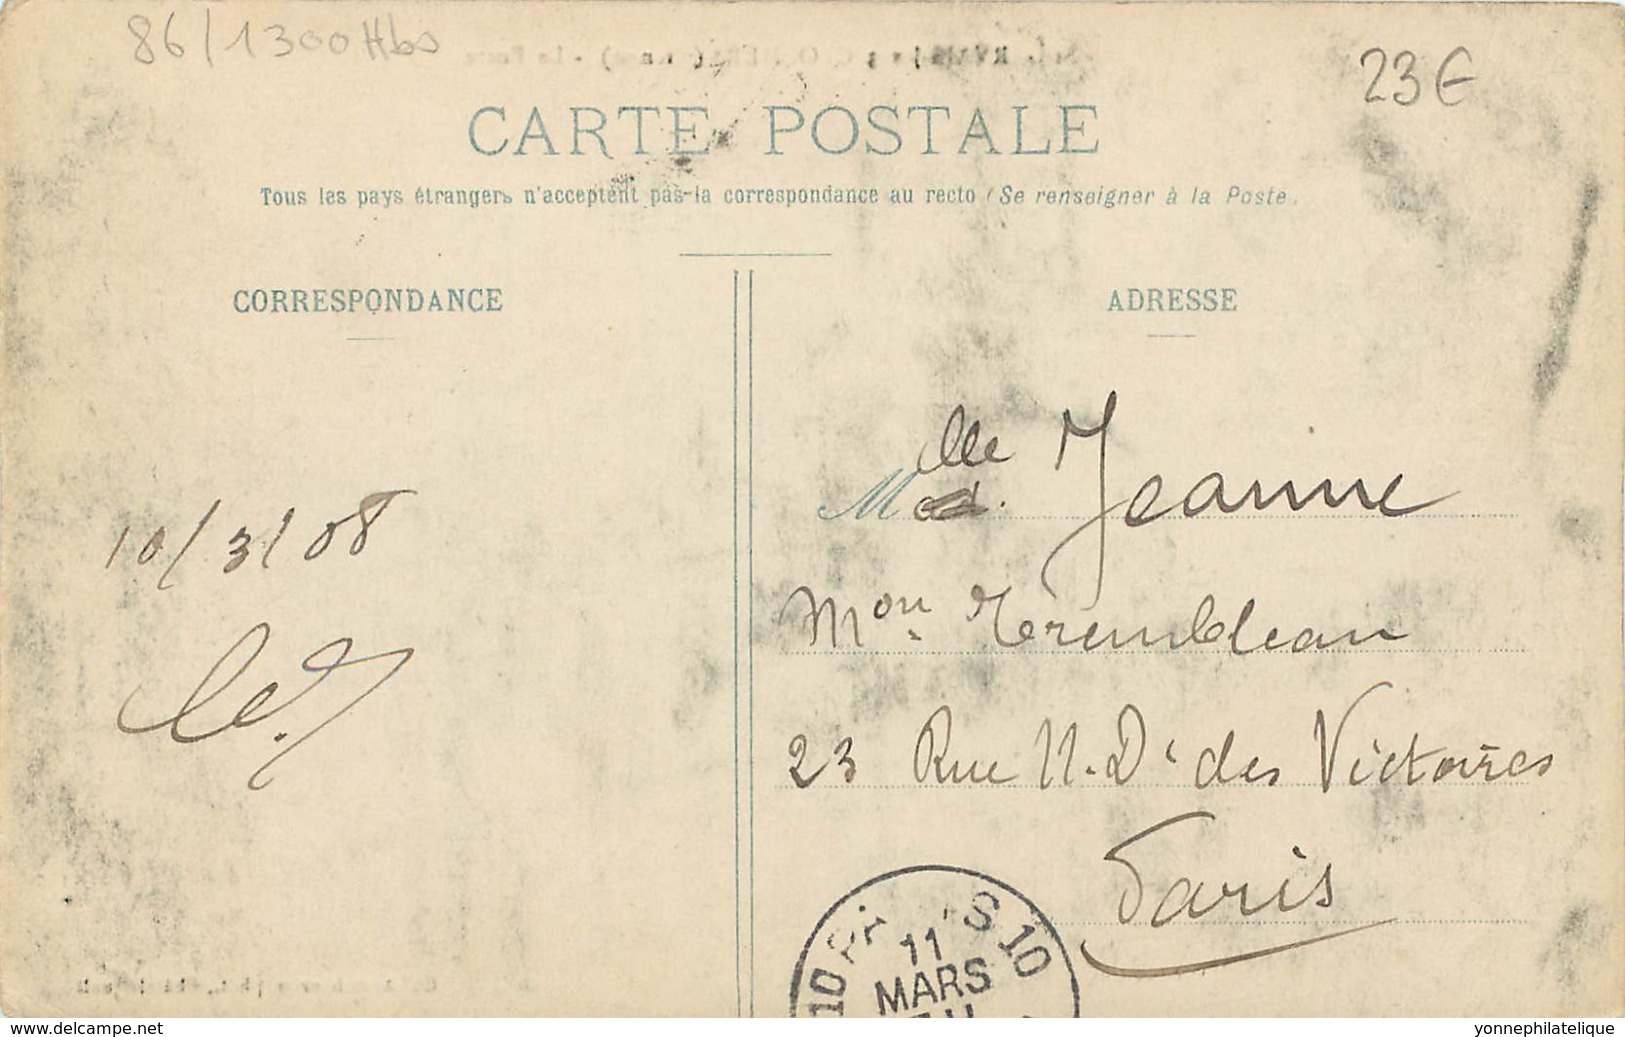 86/1300Hbs
23€
CARTE POSTALE
Tous les pays étrangers n'acceptent pas la correspondance au recto (Se renseigner à la Poste.
CORRESPONDANCE
ADRESSE
10/3/08
Melle Jeanne
Mon Trembleau
23 Rue N.D. des Victoires
Paris
S 10
11
MARS
www.delcampe.net
yonnephilatelique